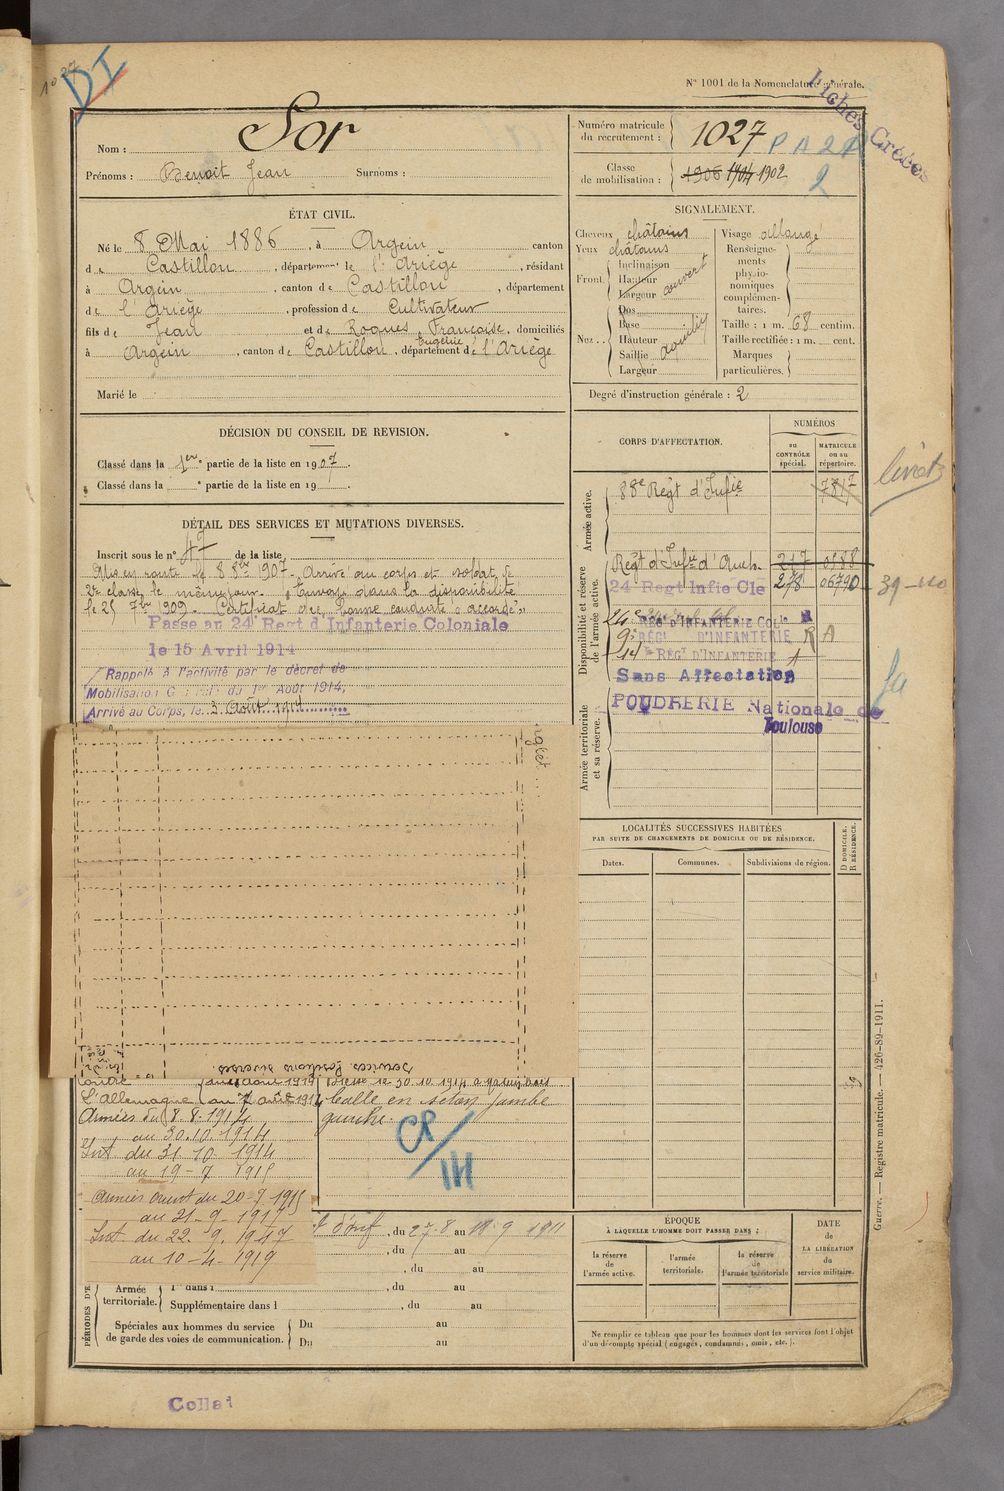 N° 1001 de la Nomenclature générale.
1027
DI
Fiches Créées
Nom : Sor
Prénoms : Benoit Jean Surnoms :
Numéro matricule du recrutement : 1027
P A 2
Classe de mobilisation : 1906 1904 1902
2
ÉTAT CIVIL.
Né le 8 Mai 1886, à Argein, canton
de Castillon, département de l'Ariège, résidant
à Argein, canton de Castillon, département
de l'Ariège, profession de Cultivateur
fils de Jean et de Roques Françoise, domiciliés
Eugénie
à Argein, canton de Castillon, département de l'Ariège
Marié le
SIGNALEMENT.
Cheveux châtains
Yeux châtains
Front. Inclinaison Hauteur Largeur couvert
Nez... Dos Base Hauteur Saillie Largeur
Visage allongé
Renseignements physionomiques complémentaires.
Taille : 1 m. 68 centim.
Taille rectifiée : 1 m. cent.
Marques particulières.
Degré d'instruction générale : 2
DÉCISION DU CONSEIL DE REVISION.
Classé dans la 1ère partie de la liste en 1907.
Classé dans la e partie de la liste en 19
DÉTAIL DES SERVICES ET MUTATIONS DIVERSES.
Inscrit sous le n° 47 de la liste
Mis en route le 8 8bre 1907. Arrivé au corps et soldat de
2e classe le même jour. Envoyé dans la disponibilité
le 25 7bre 1909. Certificat de bonne conduite "accordé"
Passé au 24 Regt d'Infanterie Coloniale
le 15 Avril 1914
Rappelé à l'activité par le décret de
Mobilisation Générale du 1er Août 1914,
Arrivé au Corps, le 3 Août 1914
CORPS D'AFFECTATION.
NUMÉROS
au CONTRÔLE spécial.
MATRICULE ou au répertoire.
Armée active.
88e Regt d'Infie
7817
livret
Disponibilité et réserve de l'armée active.
Regt d'Infie d'Auch 217 0988
24 Regt Infie Cle 278 06790
RÉG D'INFANTERIE COLle
9e RÉGt D'INFANTERIE R A
14e RÉGt D'INFANTERIE A
Sans Affectation
Armée territoriale et sa réserve.
POUDRERIE Nationale de
Toulouse
LOCALITÉS SUCCESSIVES HABITÉES
PAR SUITE DE CHANGEMENTS DE DOMICILE OU DE RÉSIDENCE.
Dates. Communes. Subdivisions de région.
D DOMICILE. R RÉSIDENCE.
Services. Positions diverses.
Blessé le 30.10.1914 à
L'Allemagne au 7 août 1914
balle en séton jambe
gauche.
Armées du 8.8.1914
au 30.10.1914
Int du 31.10.1914
au 19-7 1915
Armées du 20-7 1915
au 21-9-1917
Int. du 22.9.1917
au 10-4-1919
CP/IH
du 27-8 au 9 1911
, du au
, du au
Armée territoriale. 1° dans l , du au
Supplémentaire dans l , du au
Spéciales aux hommes du service de garde des voies de communication. Du au
Du au
ÉPOQUE
À LAQUELLE L'HOMME DOIT PASSER DANS :
la réserve de l'armée active.
l'armée territoriale.
la réserve de l'armée territoriale
DATE de LA LIBÉRATION du service militaire.
Ne remplir ce tableau que pour les hommes dont les services font l'objet
d'un décompte spécial (engagés, condamnés, omis, etc.).
Guerre. — Registre matricule. — 426-89-1911.